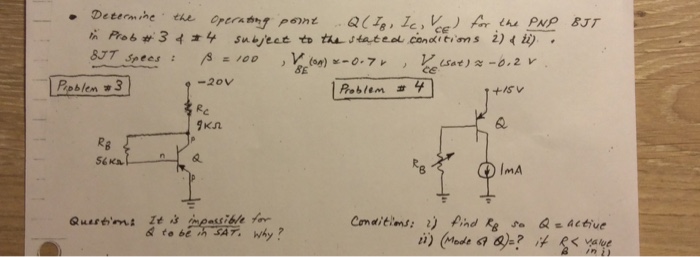 • Determine the operating point Q(IB, IC, VCE) for the PNP BJT
in Prob #3 & #4 subject to the stated conditions i) & ii).
BJT Specs: β = 100, VBE(on) ≈ -0.7 V, VCE(sat) ≈ -0.2 V
Problem #3
-20V
RC
9KΩ
RB
56KΩ
n
p
Q
p
Question: It is impossible for
Q to be in SAT. Why?
Problem #4
+15V
Q
RB
1mA
Conditions: i) find RB so Q = Active
ii) (Mode of Q)=? if RB < value
in i)